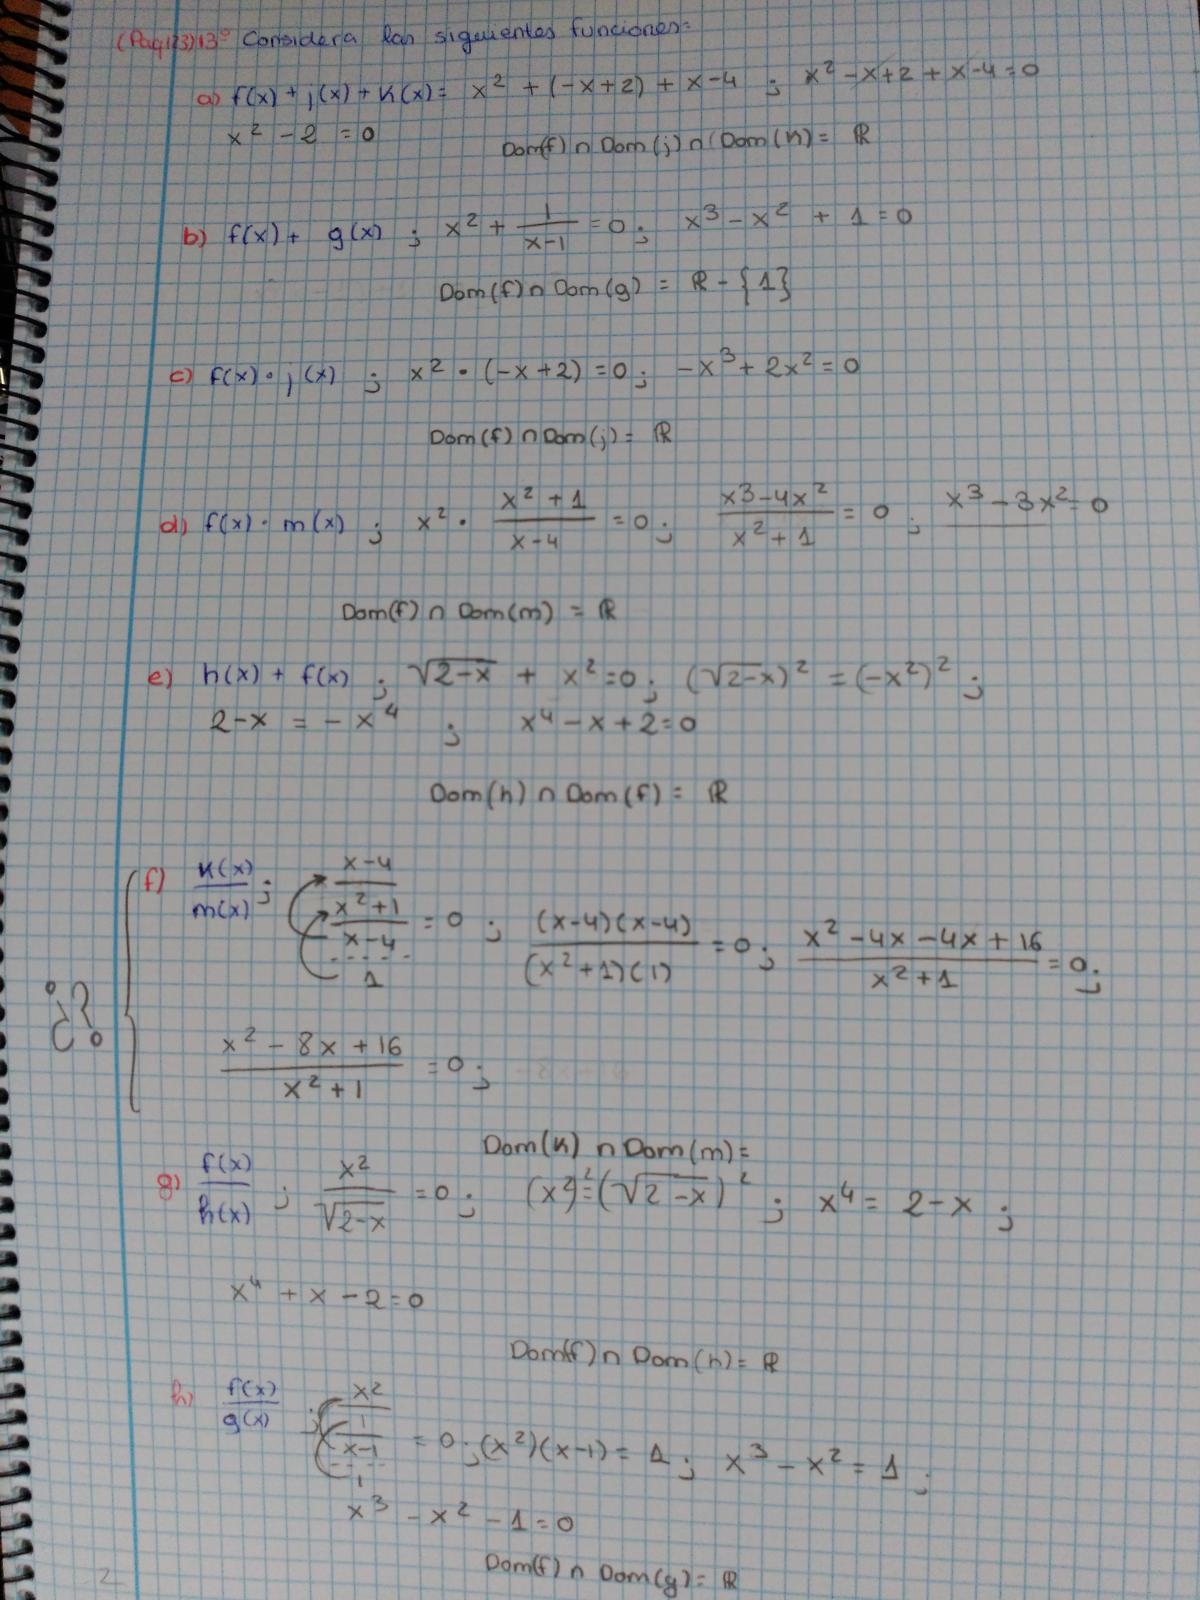 (Pag123)13º Considera las siguientes funciones:
a) f(x) + j(x) + k(x) = x² + (-x+2) + x-4 ; x² -x+2 + x-4=0
x² -2 =0
Dom(f) ∩ Dom(j) ∩ (Dom(k) = ℝ
b) f(x) + g(x) ; x² + 1/(x-1) =0 ; x³ - x² + 1 = 0
Dom(f) ∩ Dom(g) = ℝ - {1}
c) f(x) · j(x) ; x² · (-x+2) =0 ; -x³ + 2x² = 0
Dom(f) ∩ Dom(j) = ℝ
d) f(x) · m(x) ; x² · (x² + 1)/(x-4) = 0 ; (x³-4x²)/(x² + 1) = 0 ; x³ - 3x² = 0
Dom(f) ∩ Dom(m) = ℝ
e) h(x) + f(x) ; √(2-x) + x² =0 ; (√(2-x))² = (-x²)² ;
2-x = - x⁴ ; x⁴ - x + 2 = 0
Dom(h) ∩ Dom(f) = ℝ
f) k(x)/m(x) ; (x-4)/((x²+1)/(x-4)) = 0 ; ((x-4)(x-4))/((x²+1)(1)) = 0 ; (x² -4x -4x + 16)/(x² + 1) = 0 ;
1
¿?
(x² - 8x + 16)/(x² + 1) = 0 ;
Dom(k) ∩ Dom(m) =
g) f(x)/h(x) ; x²/√(2-x) = 0 ; (x²)² = (√(2-x))² ; x⁴ = 2-x ;
x⁴ + x - 2 = 0
Dom(f) ∩ Dom(h) = ℝ
h) f(x)/g(x) ; x²/(1/(x-1)) = 0 ; (x²)(x-1) = 1 ; x³ - x² = 1 ;
1
x³ - x² - 1 = 0
Dom(f) ∩ Dom(g) = ℝ
2